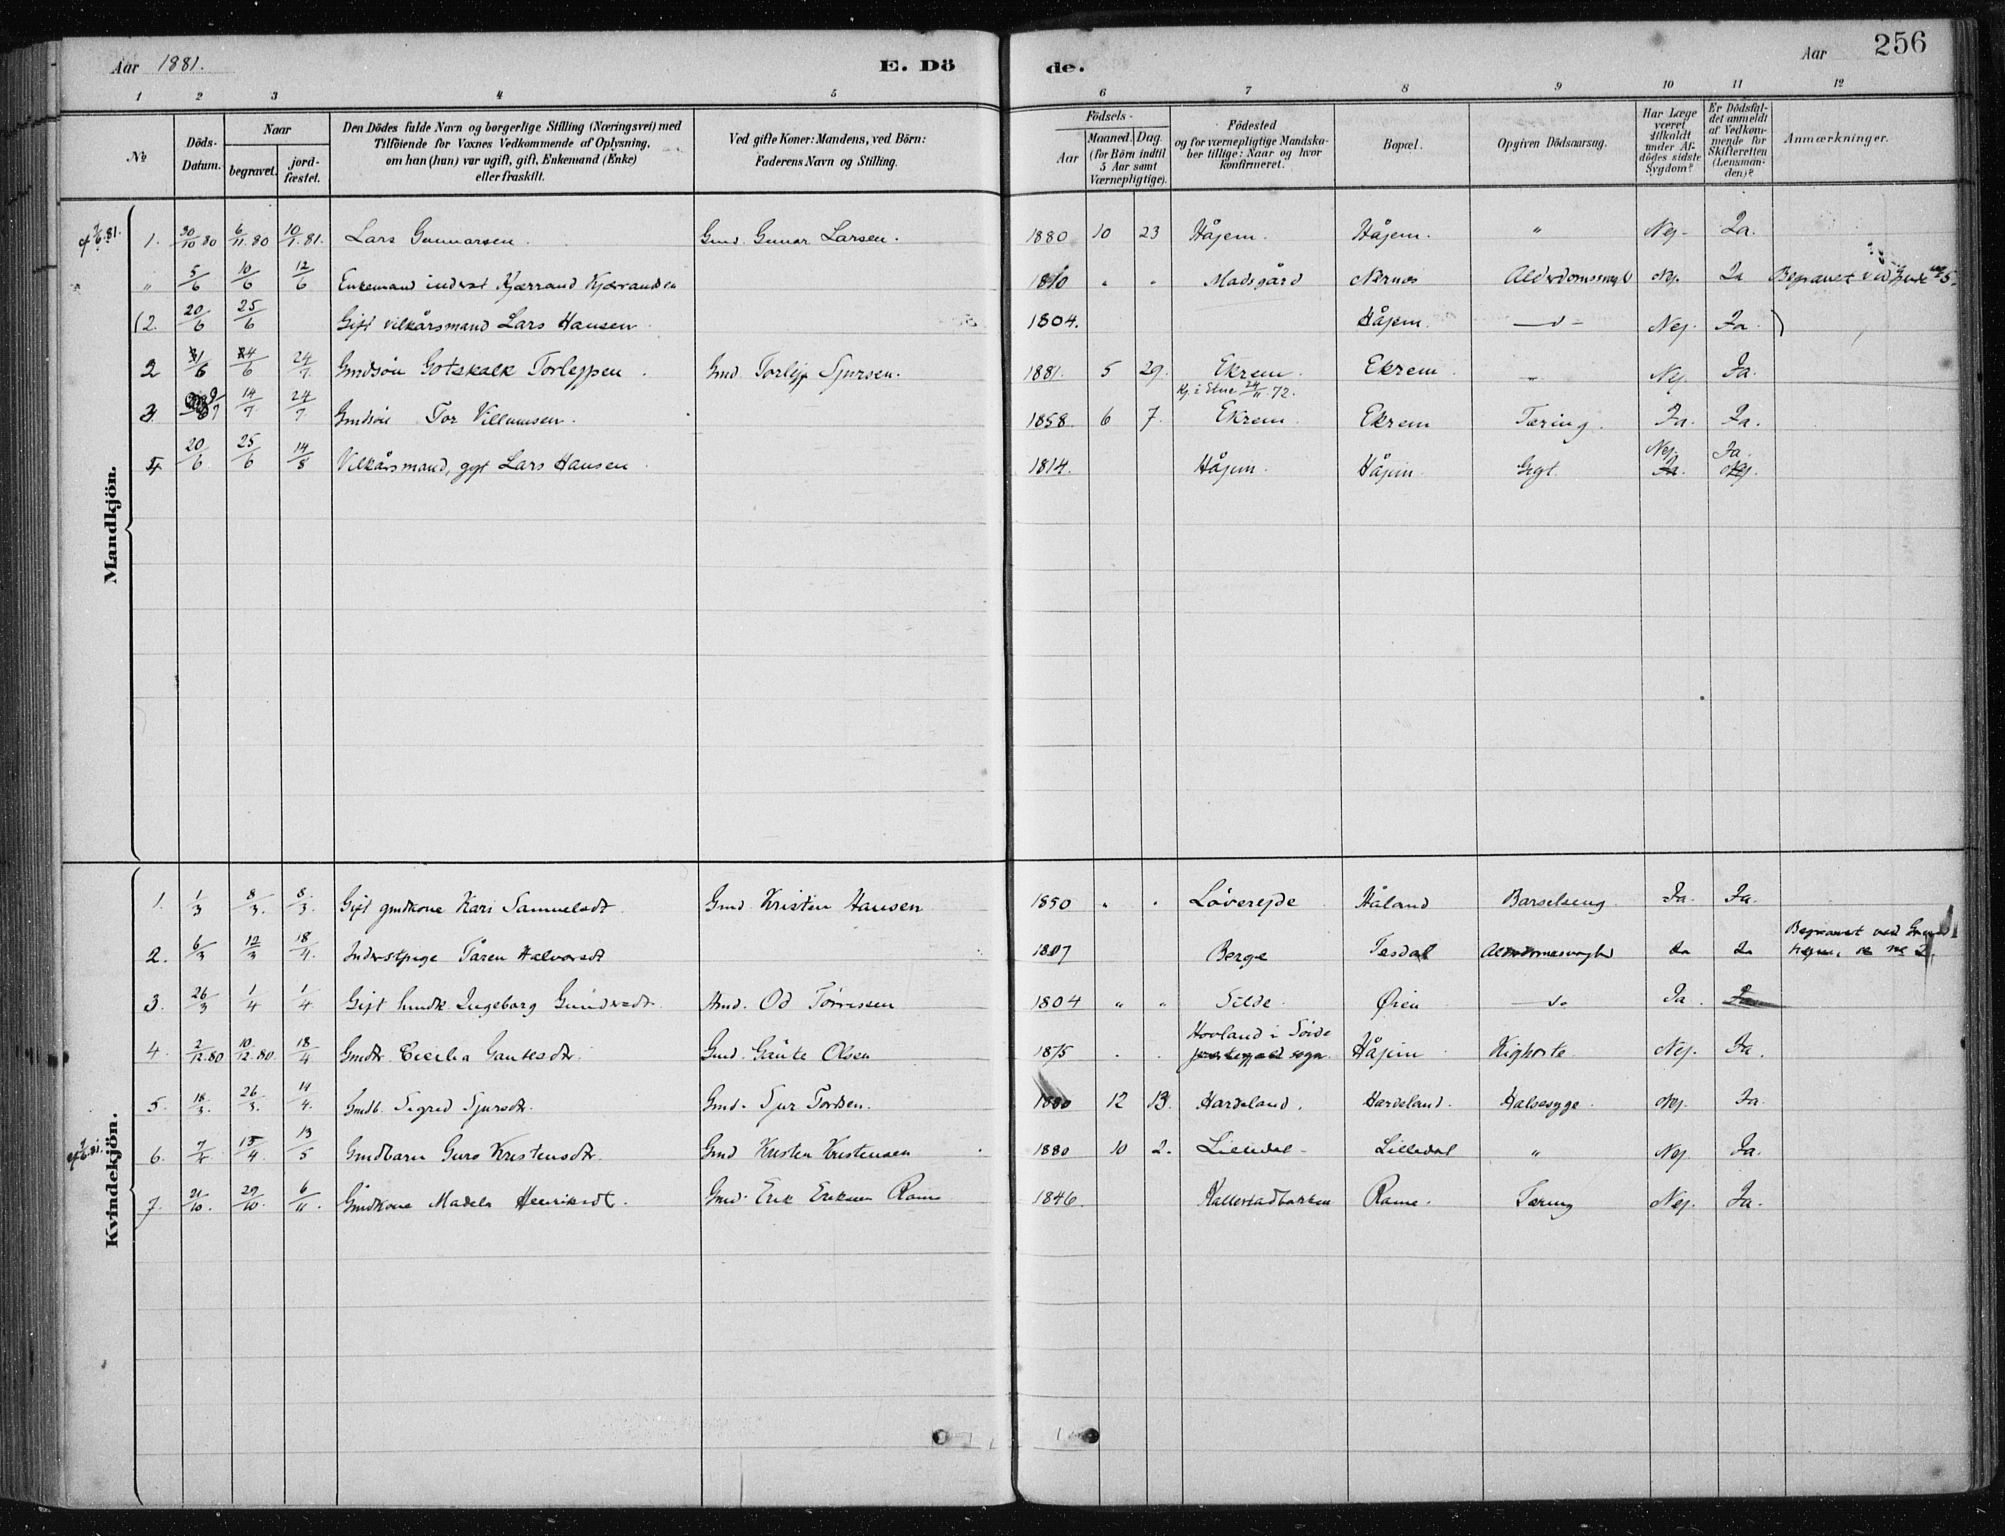 Aar 1881. E. Dö de. Aar 256
1 2 3 4 5 6 7 8 9 10 11 12
№ Döds-Datum. Naar begravet. jordfæstet. Den Dödes fulde Navn og borgerlige Stilling (Næringsvei) med Tilföiende for Voxnes Vedkommende af Oplysning, om han (hun) var ugift, gift, Enkemand (Enke) eller fraskilt. Ved gifte Koner: Mandens, ved Börn: Faderens Navn og Stilling. Födsels- Aar Maaned. Dag. (for Börn indtil 5 Aar samt Værnepligtige). Födested og for værnepligtige Mandskaber tillige: Naar og hvor konfirmeret. Bopæl. Opgiven Dödsaarsag. Har Læge været tilkaldt under Afdödes sidste Sygdom? Er Dödsfaldet anmeldt af Vedkommende for Skifteretten (Lensmanden)? Anmærkninger.
Mandkjön.
1. 30/10 80 6/11 80 10/7. 81. Lars Gunnarsen. Gmd. Gunnar Larsen. 1880 10 23 Håjem. Håjem. " Nej. Ja.
" 5/6 10/6 12/6 Enkemand inderst Kjærrand Kjærrandsen 1810 " " Madsgård Nernes Alderdomssvagh Nej. Ja Begravet ved
(2. 20/6 25/6 Gift vilkårsmand Lars Hansen 1804. Håjem. -d- Nej. Ja.)
2 1/6 4/6 24/7 Gmdsön Gotskalk Torleppen. Gmd. Torlejp Sjursen. 1881. 5 29. Ekrem. Ekrem. Nej Ja.
3 14/7 24/7 Gmdsön Tor Villumsen. 1858. 6 7. Kf. i Etne 24/11 72. Ekrem. Ekrem Tæring. Ja. Ja.
4 20/6 25/6 14/8 Vilkårsmand, gift Lars Hansen 1814. Håjem. Håjem. Gigt. Nej. Ja. Ja. Nej.
Kvindekjön.
1. 1/3 8/3. 8/3. Gift gmdkone Kari Samuelsdt. Gmd. Kristen Hansen 1850 " " Löverejde Håland Barselseng Ja. Ja.
2. 6/3 12/3 18/4. Inderstpige Tåren Halvorsdt 1807 Berge Tesdal Alderdomssvaghed Ja Ja Begravet ved
3. 26/3 1/4 1/4 Gift hmdk. Ingeborg Gundersdt. Hmd. Od Törressen 1804 " " Silde. Øien -d- Ja. Ja
4. 2/12. 80 10/12. 80. 18/4 Gmdtr. Cecilia Gautesdtr. Gmd. Gaute Olsen 1875 " " Hovland i Söide sogn. Håjem Kighoste. Nej. Ja.
5. 18/3. 26/3. 14/4. Gmdb. Sigrid Sjursdt. Gmd. Sjur Tordsen. 1880 12 13. Hardeland. Hardeland. Halssyge. Nej. Ja.
6. 7/4 15/4 13/5 Gmdbarn Guro Kristensdtr. Gmd Kristen Kristensen 1880 10 2. Lilledal Lilledal " Nej Ja.
7. 21/10. 29/10. 6/11. Gmdkone Madela Henriksdt. Gmd. Erik Eriksen Rame 1846. Kallestadbakken Rame. Tæring Nej. Ja.